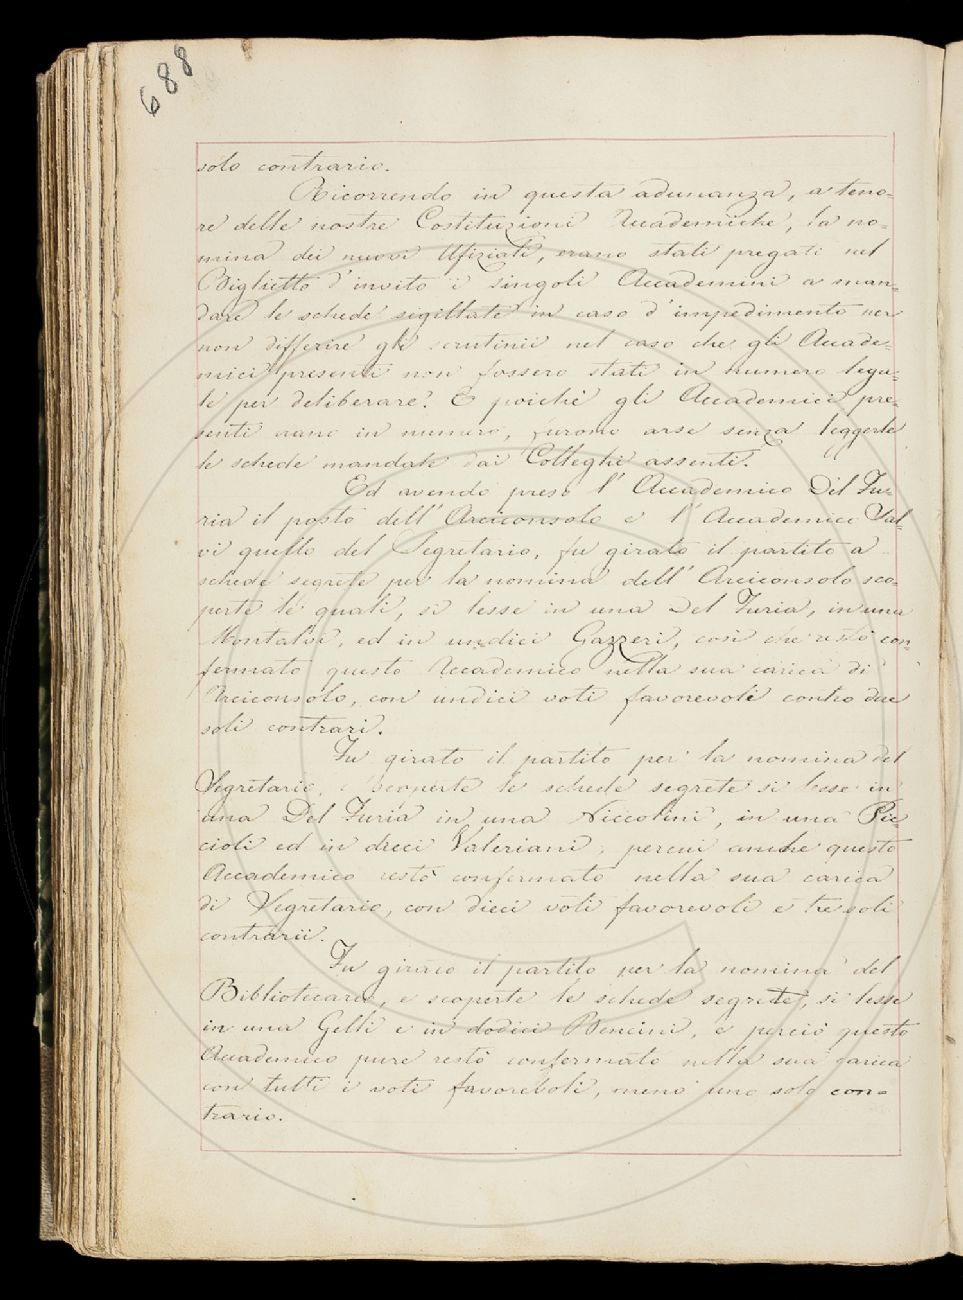 688
solo contrario.
Ricorrendo in questa adunanza, a teno=
re delle nostre Costituzioni Accademiche, la no=
mina dei nuovi Ufiziali, erano stati pregati nel
Biglietto d'invito i singoli Accademici a man=
dare le schede sigillate in caso d'impedimento per
non differire gli scrutinii nel caso che gli Accade=
mici presenti non fossero stati in numero lega=
le per deliberare. E poichè gli Accademici pre=
senti erano in numero, furono arse senza leggerle
le schede mandate dai Colleghi assenti.
Ed avendo preso l'Accademico Del Fu=
ria il posto dell'Arciconsolo e l'Accademico Sal=
vi quello del Segretario, fu girato il partito a
schede segrete per la nomina dell'Arciconsolo sco=
perte le quali, si lesse in una Del Furia, in una
Montalvi, ed in undici Gazzeri, così che restò con=
fermato questo Accademico nella sua carica di
Arciconsolo, con undici voti favorevoli contro due
soli contrari.
Fu girato il partito per la nomina del
Segretario, e scoperte le schede segrete si lesse in
una Del Furia in una Niccolini, in una Pic=
cioli ed in dieci Valeriani, percui anche questo
Accademico restò confermato nella sua carica
di Segretario, con dieci voti favorevoli e tre soli
contrarii.
Fu girato il partito per la nomina del
Bibliotecario, e scoperte le schede segrete, si lesse
in una Gelli e in dodici Bencini, e perciò questo
Accademico pure restò confermato nella sua carica
con tutti i voti favorevoli, meno uno solo con=
trario.